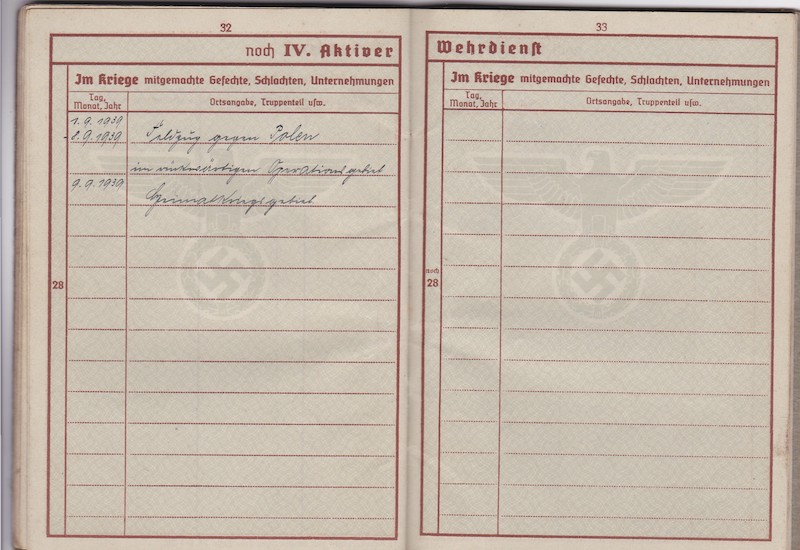 32
noch IV. Aktiver
Im Kriege mitgemachte Gefechte, Schlachten, Unternehmungen
Tag, Monat, Jahr
Ortsangabe, Truppenteil usw.
1.9.1939
-8.9.1939 Feldzug gegen Polen
im rückwärtigen Operationsgebiet
9.9.1939
Heimatkriegsgebiet
28
33
Wehrdienst
Im Kriege mitgemachte Gefechte, Schlachten, Unternehmungen
Tag, Monat, Jahr
Ortsangabe, Truppenteil usw.
noch
28